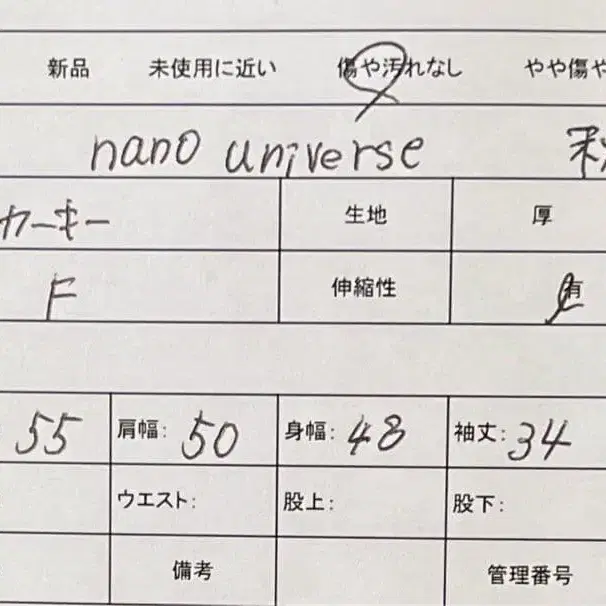 新品 未使用に近い 傷や汚れなし やや傷や
nano universe
カーキー 生地 厚
F 伸縮性 有
55 肩幅: 50 身幅: 48 袖丈: 34
ウエスト: 股上: 股下:
備考 管理番号